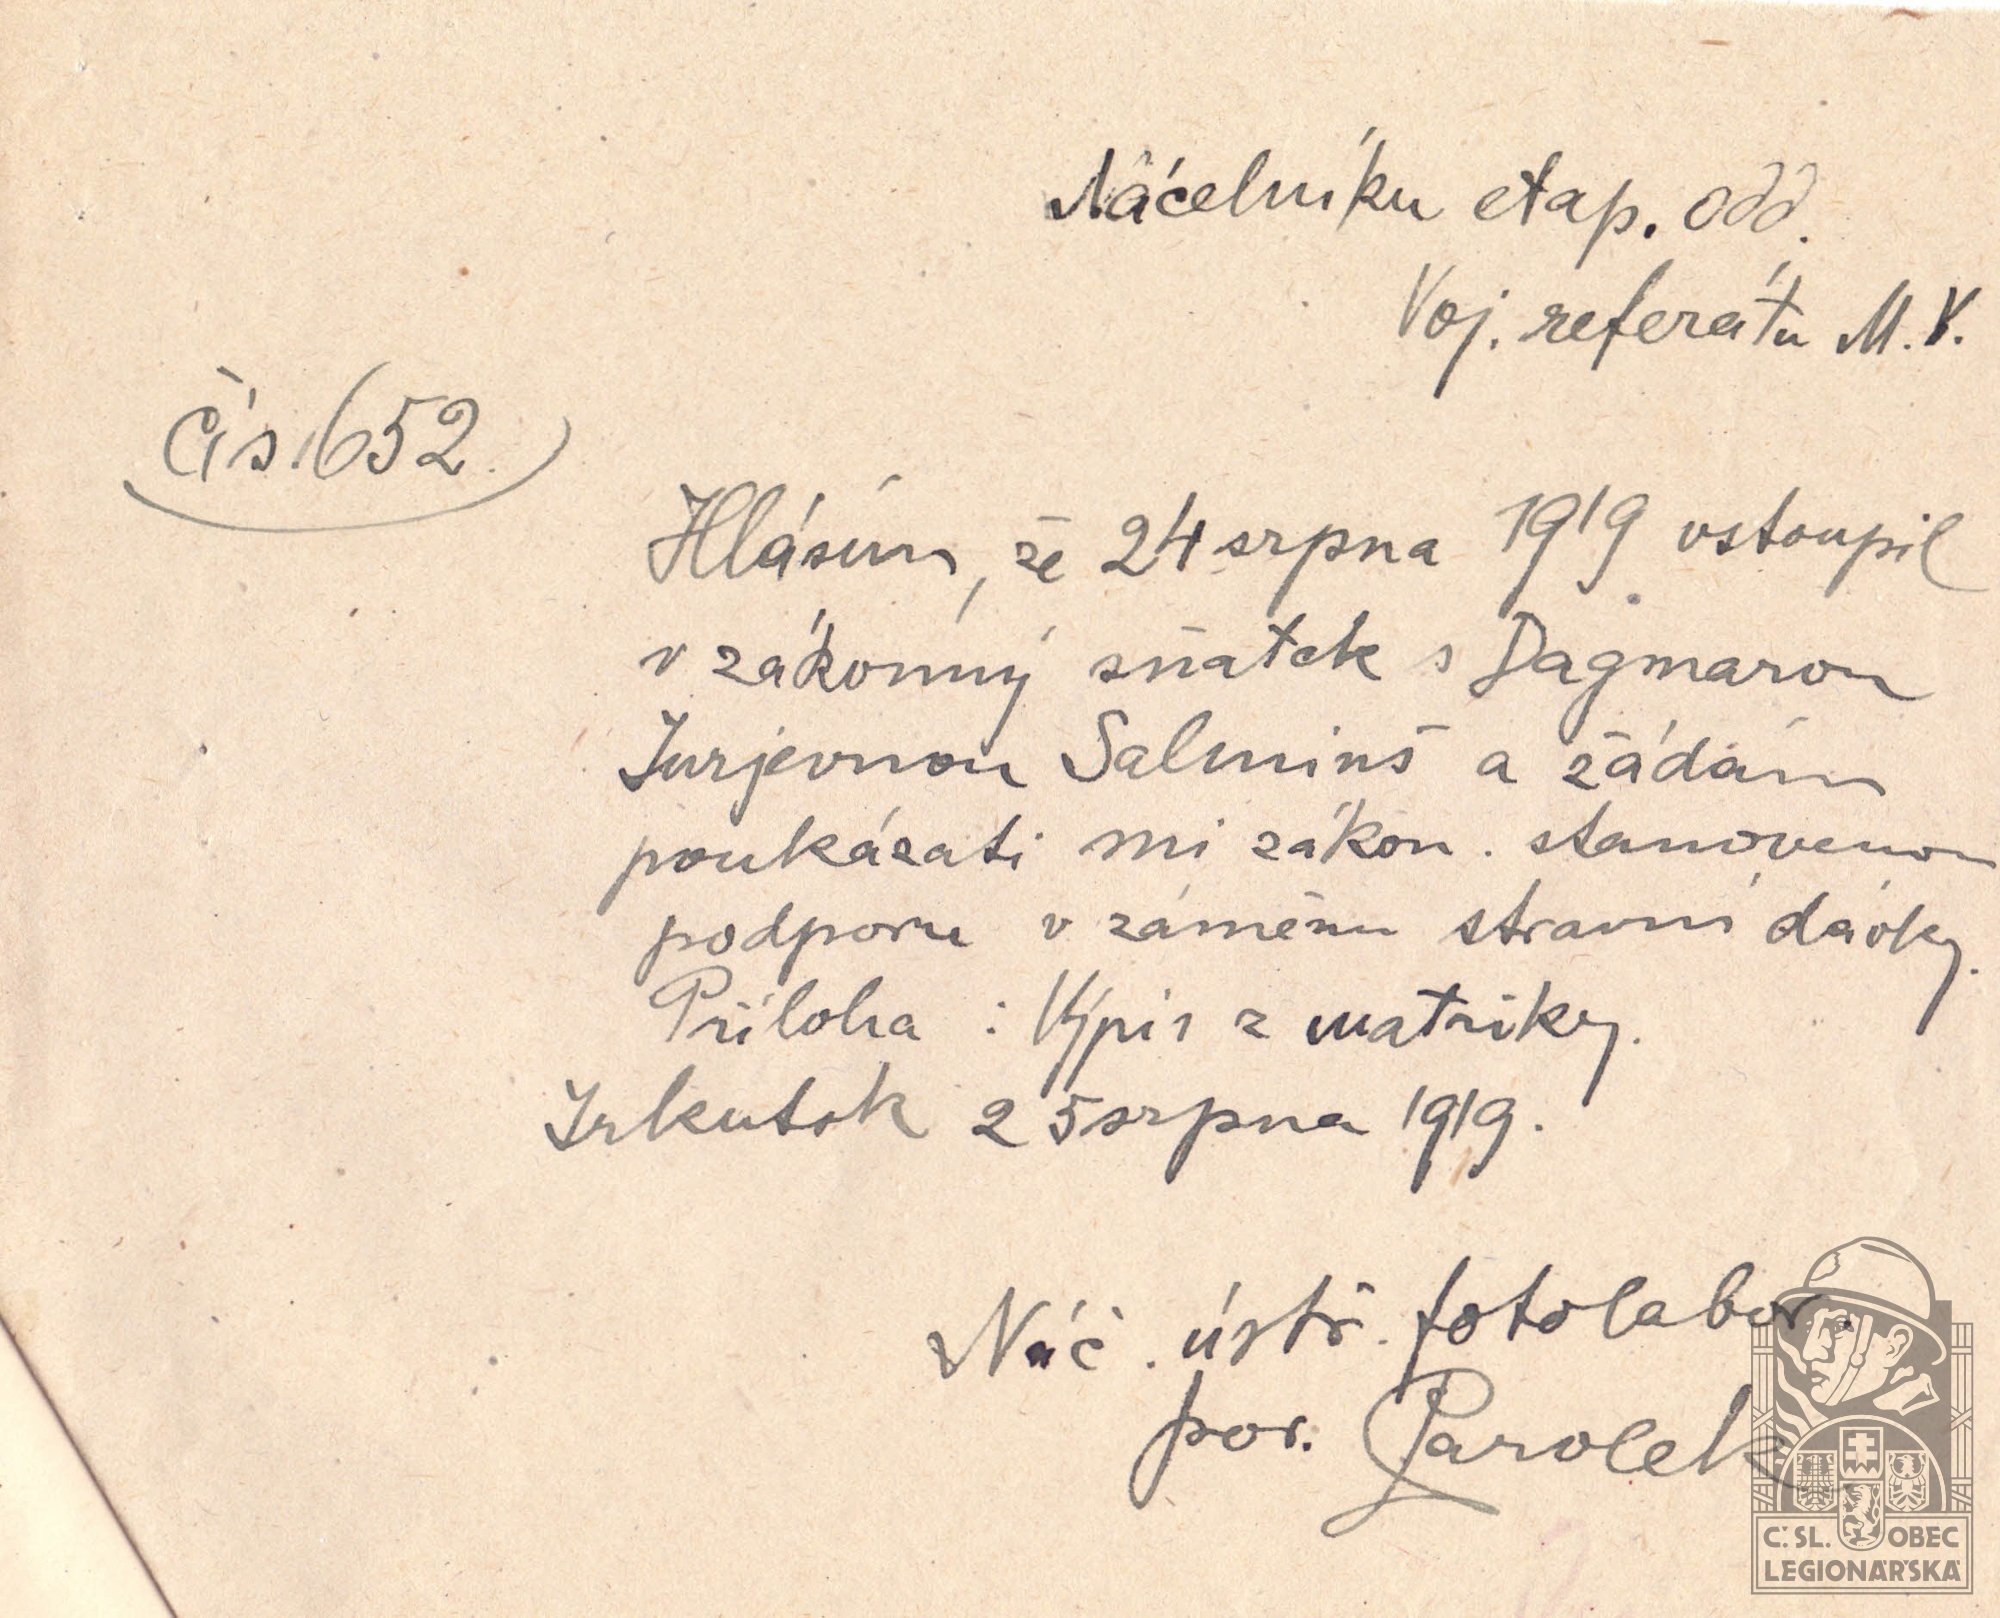 Náčelníku etap. odd.
Voj. referátu M. V.
Čís. 652.
Hlásím, že 24 srpna 1919 vstoupil
v zákonný sňatek s Dagmarou
Jurjevnou Salminš a žádám
poukázati mi zákon. stanovenou
podporu v záměnu stravní dávky.
Příloha : Výpis z matriky.
Irkutsk 25 srpna 1919.
Náč. ústř. fotolabor.
por. Parolek
Č. SL. OBEC
LEGIONÁŘSKÁ